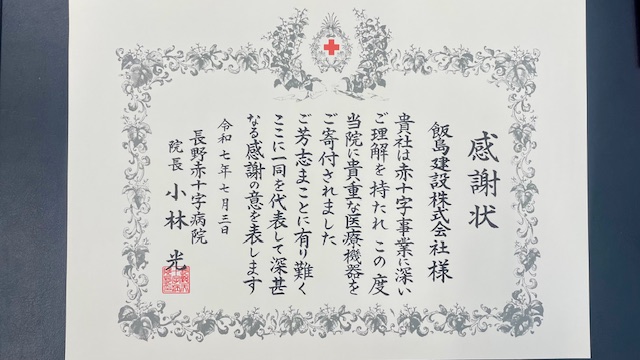 感謝状
飯島建設株式会社 様
貴社は赤十字事業に深い
ご理解を持たれ この度
当院に貴重な医療機器を
ご寄付されました
ご芳志まことに有り難く
ここに一同を代表して深甚
なる感謝の意を表します
令和七年七月三日
長野赤十字病院
院長 小林 光